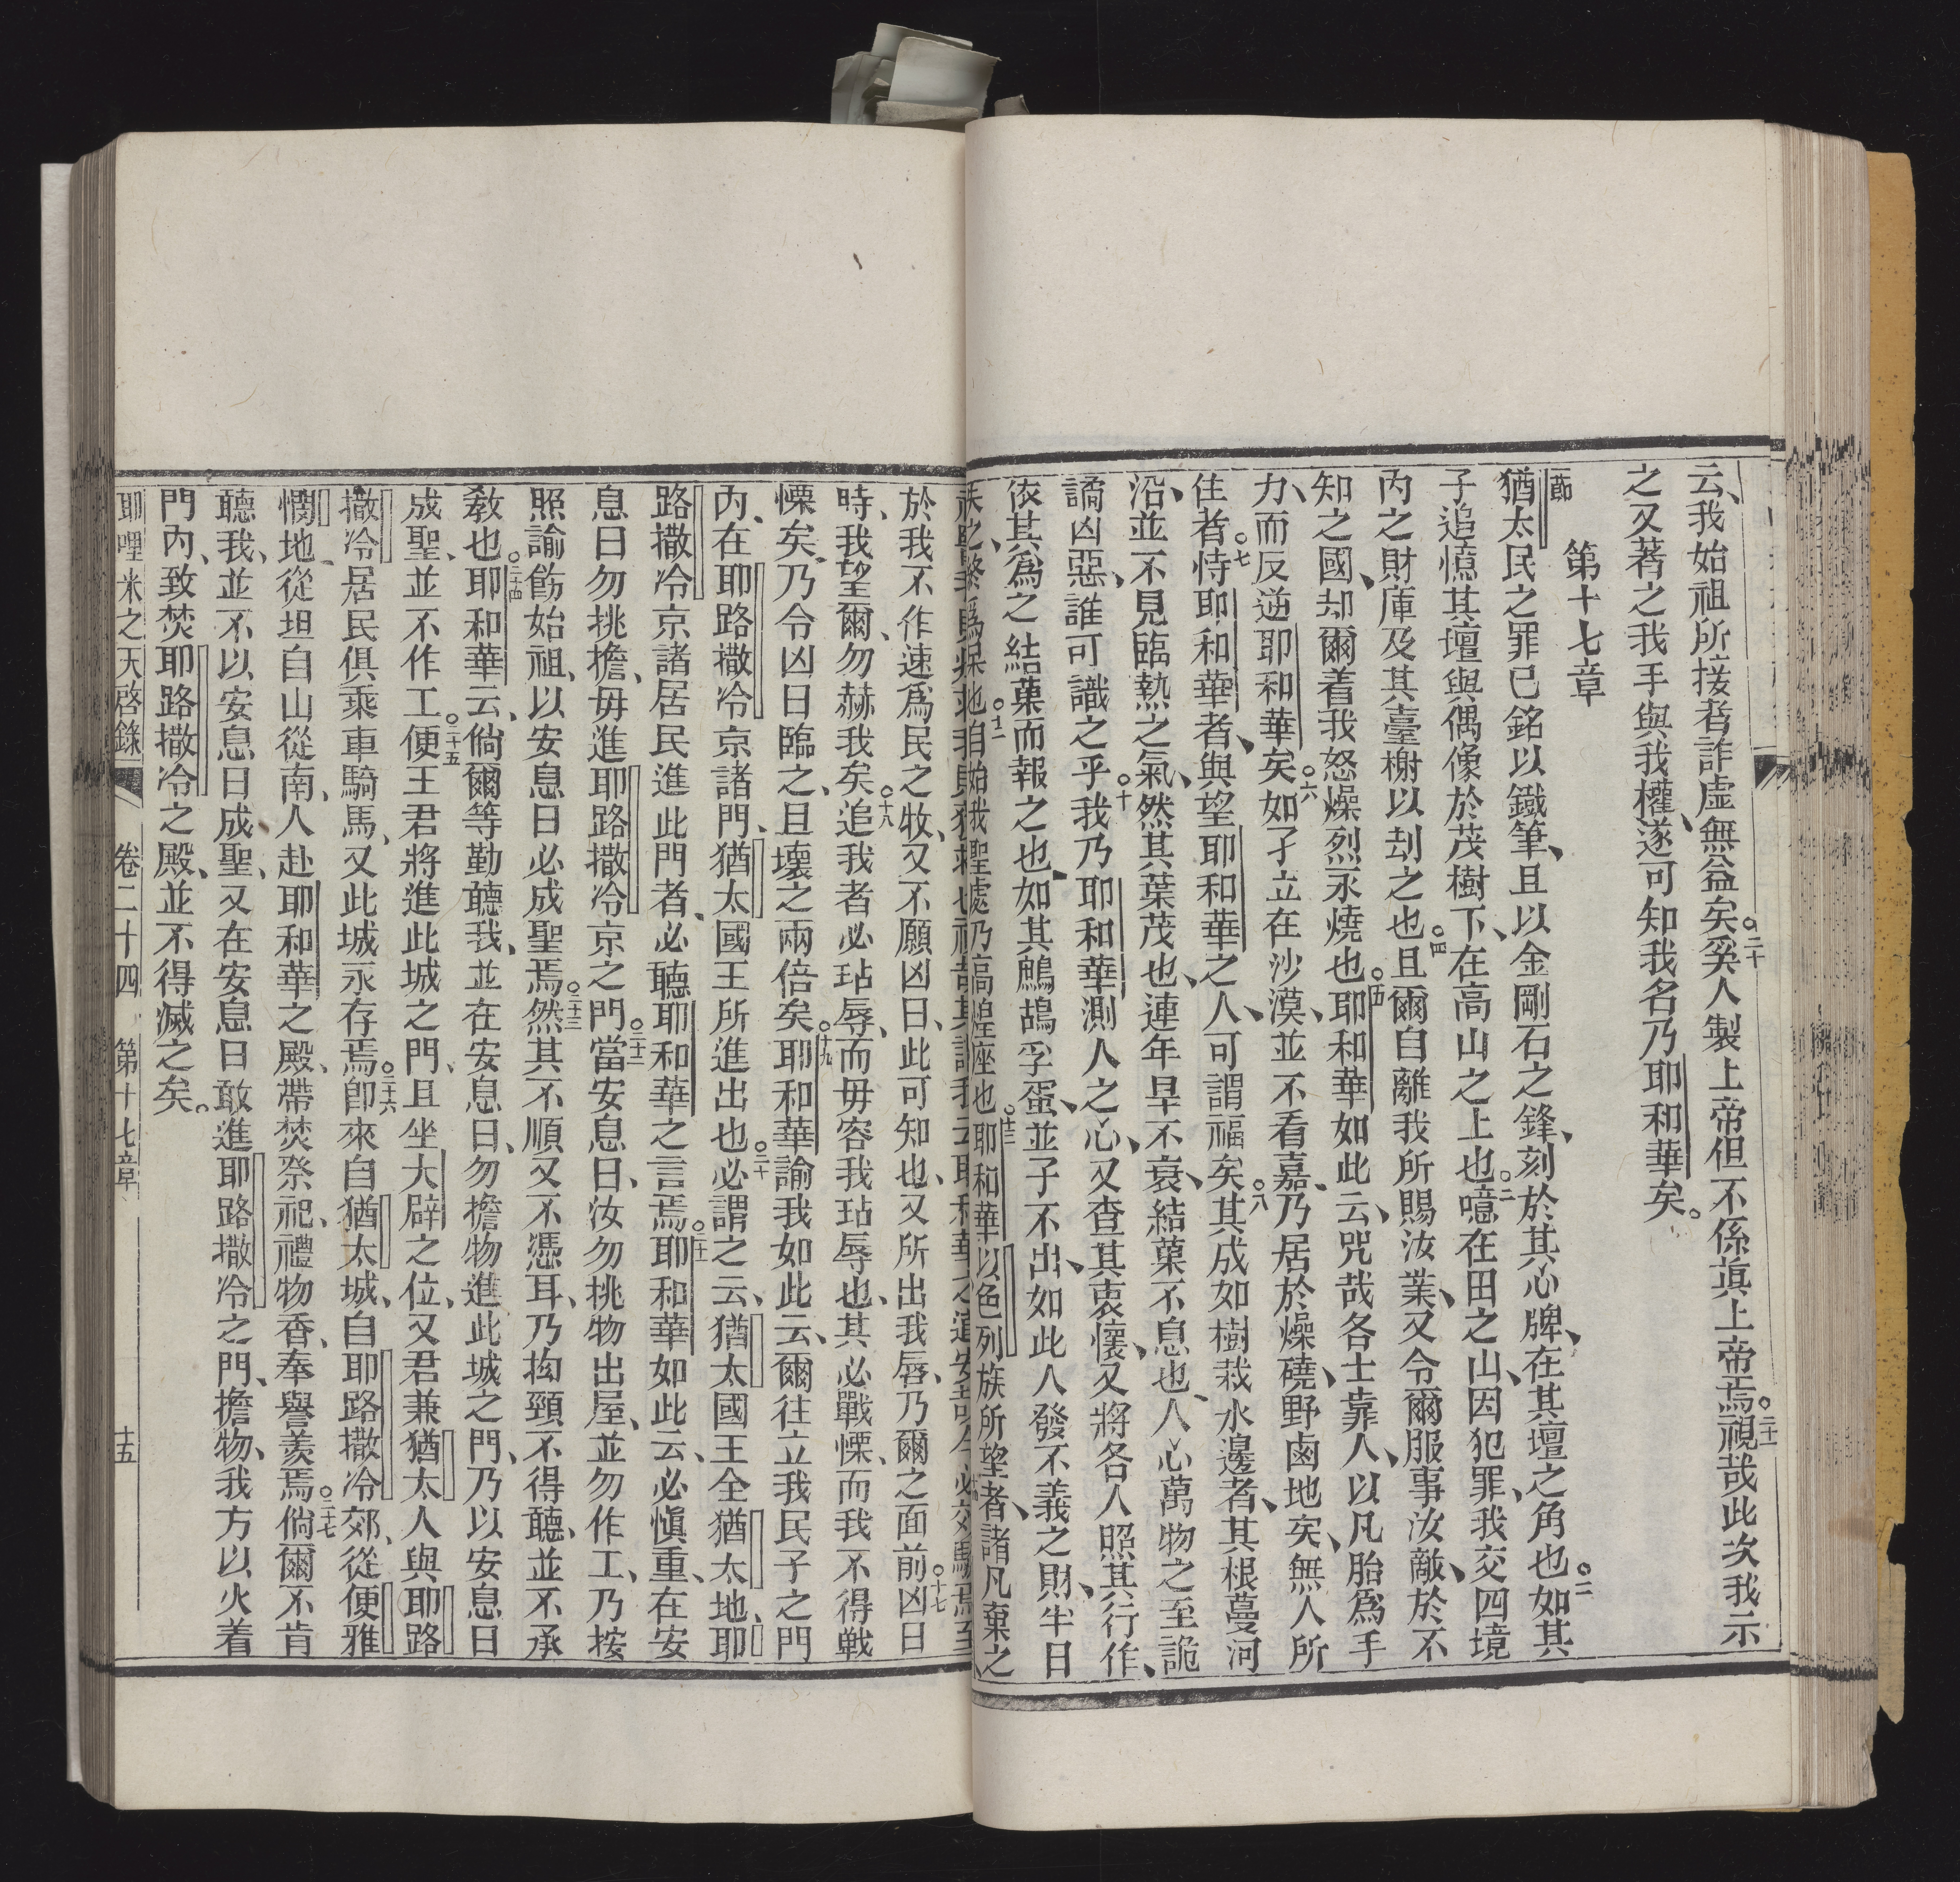 云、我始祖所接者詐虛無益矣。二十奚人製上帝但不係眞上帝焉。二十一視哉此次我示
之又著之我手與我權、遂可知我名乃耶和華矣。
第十七章
一節
猶太民之罪已銘以鐵筆、且以金剛石之鋒、刻於其心牌、在其壇之角也。二如其
子追憶其壇與偶像於茂樹下、在高山之上也。三噫在田之山、因犯罪、我交四境
內之財庫及其臺榭以刦之也。四且爾自離我所賜汝業、又令爾服事汝敵、於不
知之國、却爾着我怒燥烈永燒也。五耶和華如此云、咒哉各士靠人、以凡胎爲手
力、而反逆耶和華矣。六如孑立在沙漠、並不看嘉、乃居於燥磽、野鹵地矣、無人所
住者。七恃耶和華者、與望耶和華之人、可謂福矣。八其成如樹栽水邊者、其根蔓河
沿、並不見臨熱之氣、然其葉茂也、連年旱不衰、結菓不息也、人心萬物之至詭
譎凶惡、誰可識之乎。十我乃耶和華測人之心、又查其衷懷、又將各人照其行作、
依其爲之結菓而報之也、如其鷓鴣孚蛋、並子不出、如此人發不義之財、半日
自始我聖處乃高煌座也。十三耶和華以色列族所望者、諸凡棄之
於我不作速爲民之牧、又不願凶日、此可知也、又所出我唇、乃爾之面前。十七凶日
時、我望爾、勿赫我矣。十八追我者必玷辱、而毋容我玷辱也、其必戰慄、而我不得戰
慄矣、乃令凶日臨之、且壞之兩倍矣。十九耶和華諭我如此云、爾往立我民子之門
內、在耶路撒冷京諸門、猶太國王所進出也。二十必謂之云、猶太國王全猶太地、耶
路撒冷京諸居民進此門者、必聽耶和華之言焉。二十一耶和華如此云、必慎重、在安
息日勿挑擔、毋進耶路撒冷京之門。二十二當安息日、汝勿挑物出屋、並勿作工、乃按
照諭飭始祖、以安息日必成聖焉。二十三然其不順又不憑耳、乃拘頸不得聽、並不承
教也。二十四耶和華云、倘爾等勤聽我、並在安息日、勿擔物進此城之門、乃以安息日
成聖、並不作工。二十五便王君將進此城之門、且坐大辟之位、又君兼猶太人與耶路
撒冷居民俱乘車騎馬、又此城永存焉。二十六卽來自猶太城、自耶路撒冷郊、從便雅
憫地、從坦自山從南、人赴耶和華之殿、帶焚祭祀、禮物香、奉譽羨焉。二十七倘爾不肯
聽我、並不以安息日成聖、又在安息日敢進耶路撒冷之門、擔物、我方以火着
門內、致焚耶路撒冷之殿、並不得滅之矣。
耶哩米之天啓錄　卷二十四　第十七章　十五